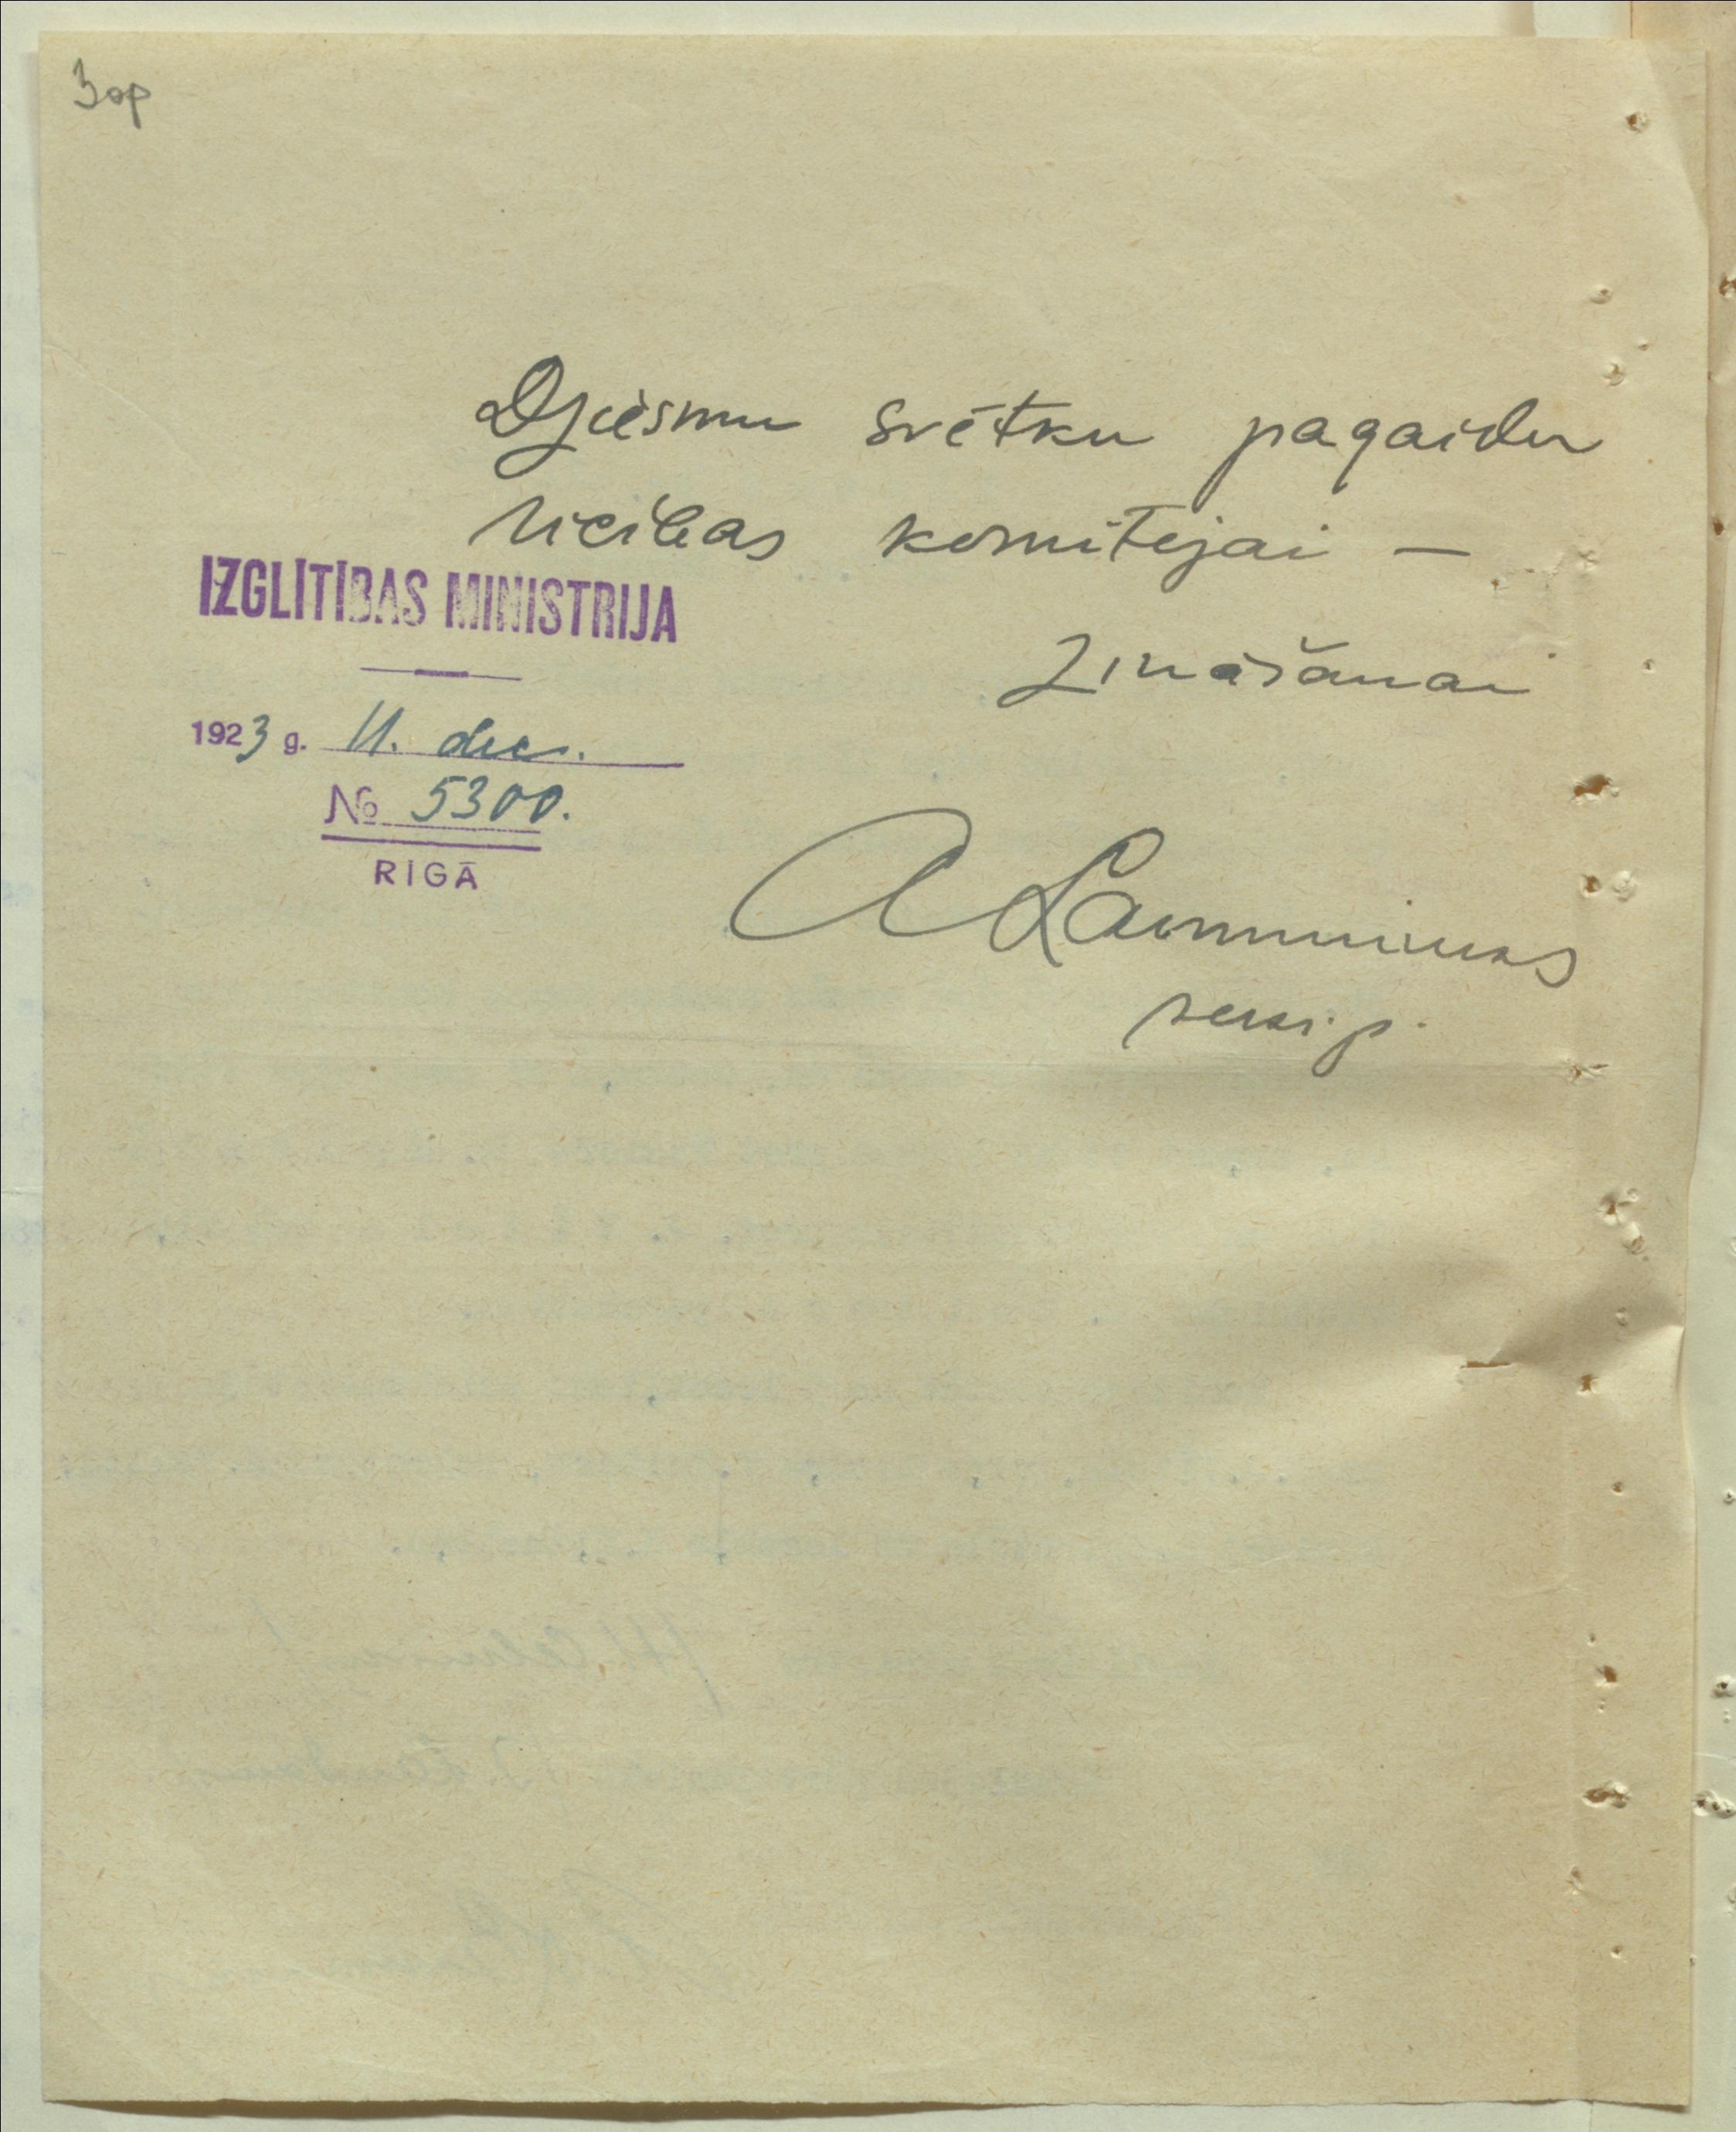 3op
Dziesmu svētku pagaidu
rīcības komitejai —
zināšanai
IZGLĪTĪBAS MINISTRIJA
1923 g. 11. dec.
№ 5300.
RĪGĀ